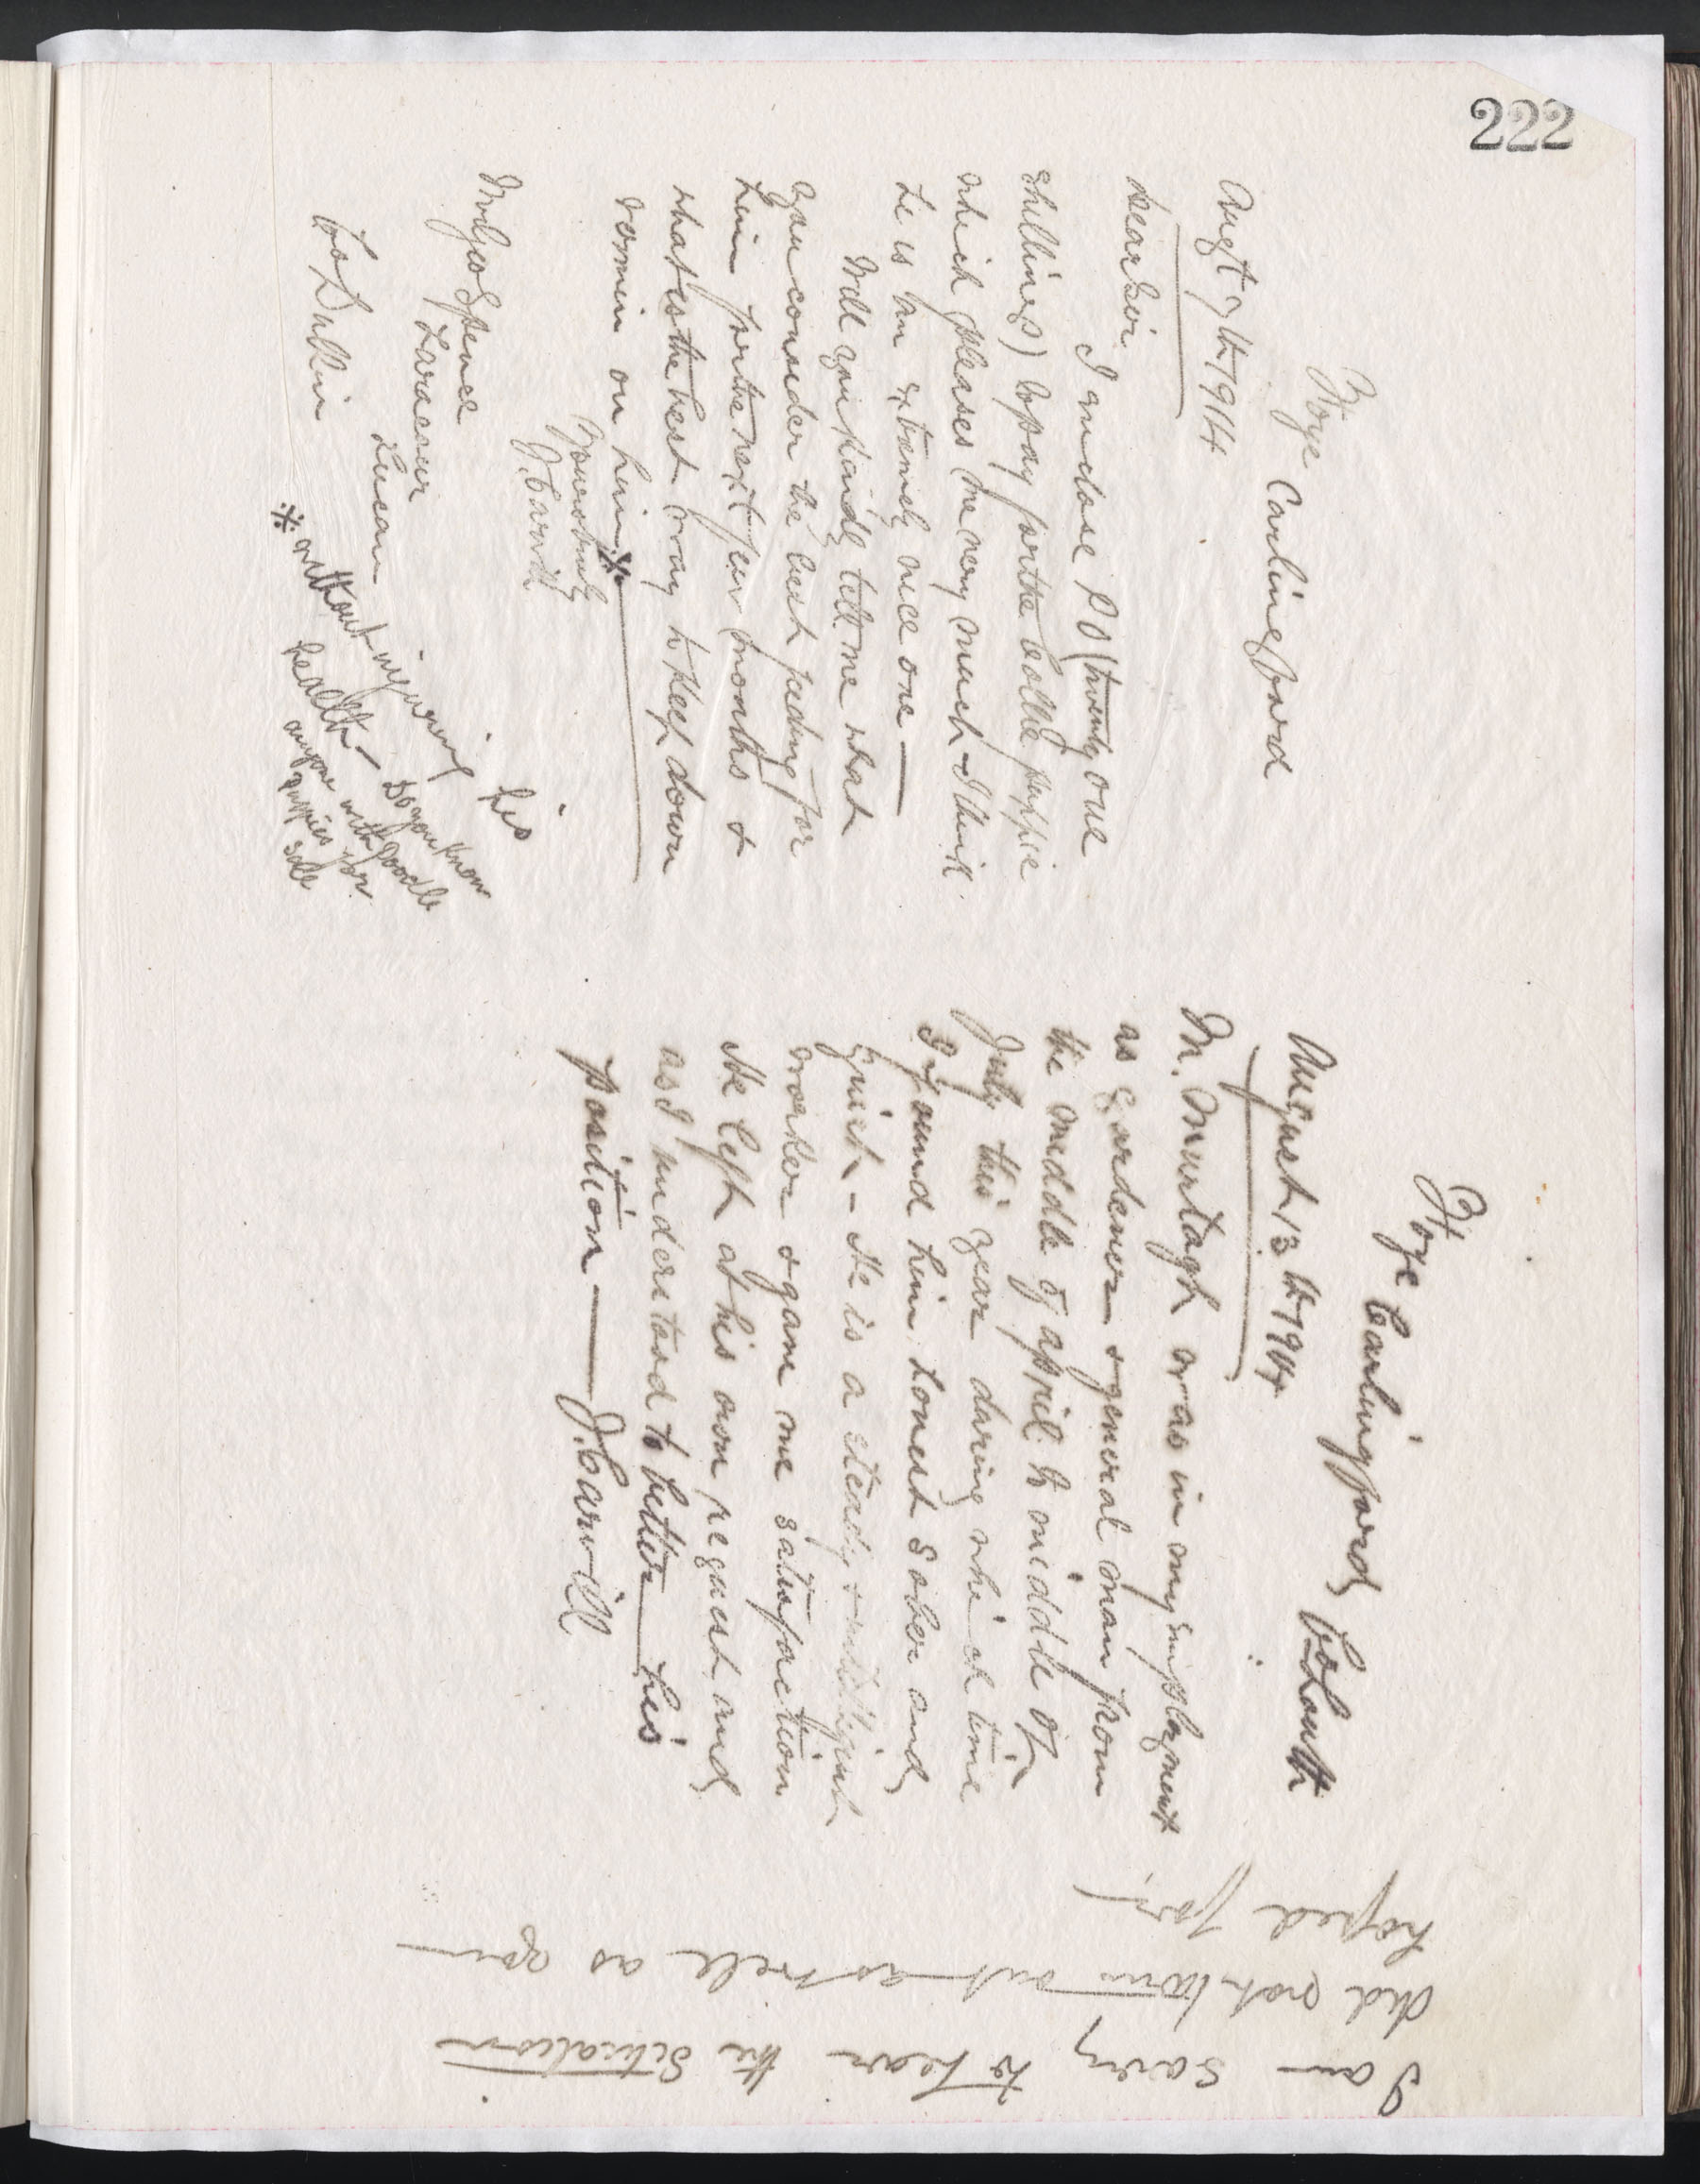 222
Ffoye Carlingford
Augst 7th 1914
Dear Sir
I enclose P O (twenty one
shillings) to pay for the Collie puppie
which pleases me very much - I think
he is an extremely nice one —
Will you kindly tell me what
you consider the best feeding for
him for the next few months &
what is the best way to keep down
vermin on him *
Yours truly
J. Carvill
Geo Spence
Laracour
Lucan
Co Dublin
* without injuring his
health - Do you know
anyone with poodle
puppies for
sale
Ffoye Carlingford Co Louth
August 13th 1914
M. Murtagh was in my employment
as gardener & general man from
the middle of april to middle of
July this year during which time
I found him honest sober and
quiet - He is a steady & intelligent
worker & gave me satisfaction
He left at his own request and
as I understood to better his
position — J. Carvill
I am sorry to hear the Situation
did not turn out as well as you
hoped for!